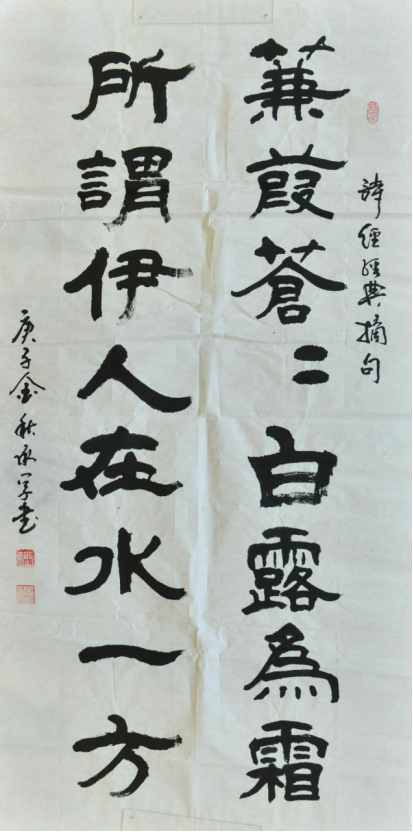 詩經經典摘句
蒹葭蒼〻白露為霜
所謂伊人在水一方
庚子金秋承学書